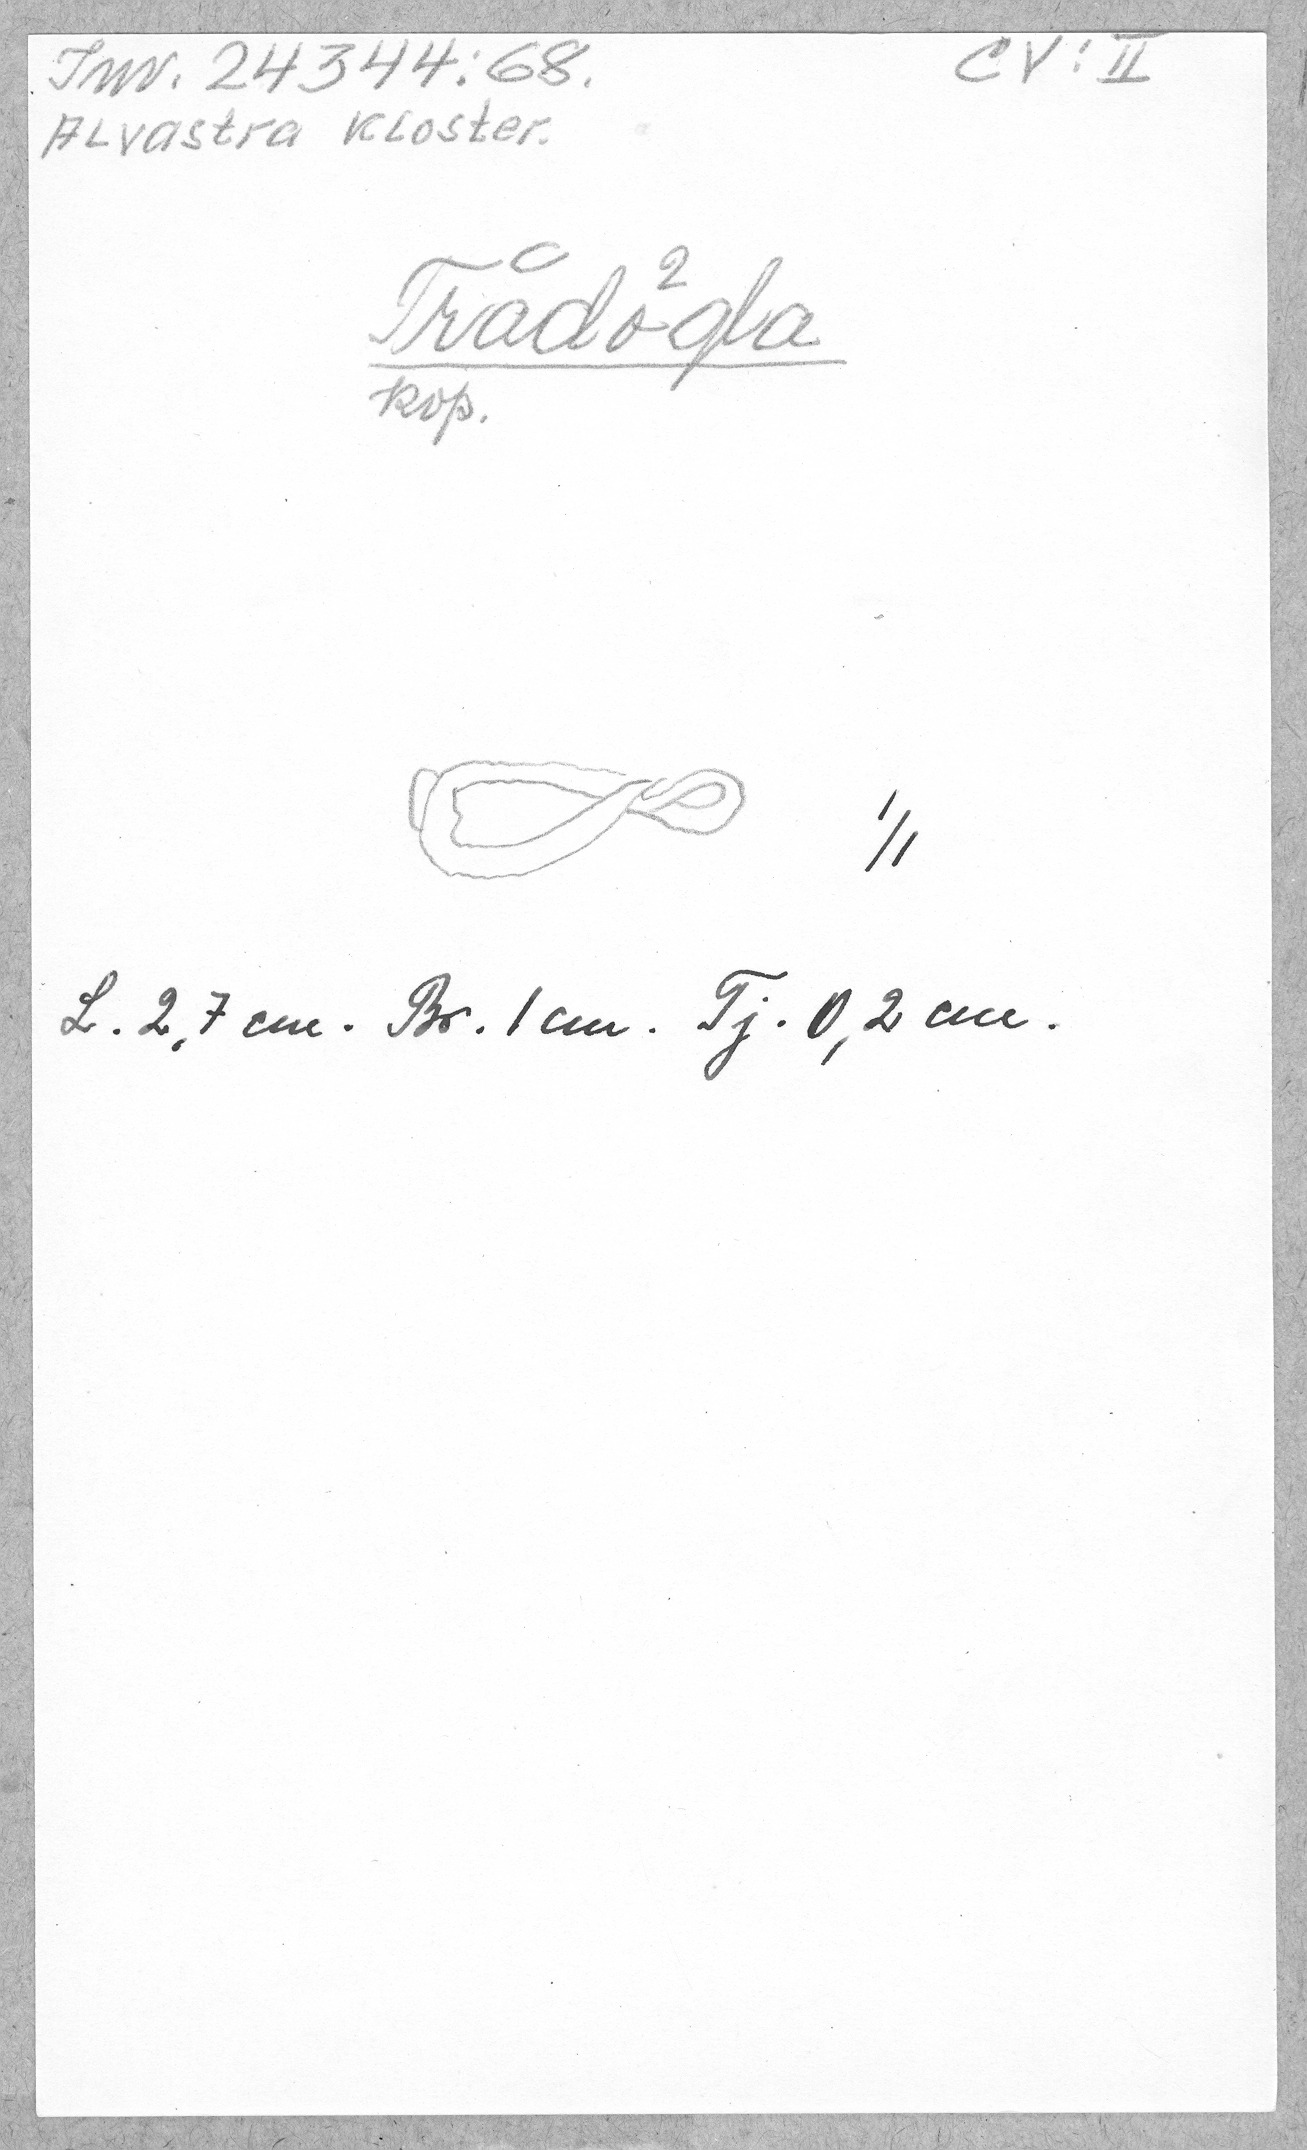 Inv. 24344:68. CV:II
Alvastra Kloster.
Trådögla
kop.
1/1
L. 2,7 cm. Br. 1 cm. Tj. 0,2 cm.